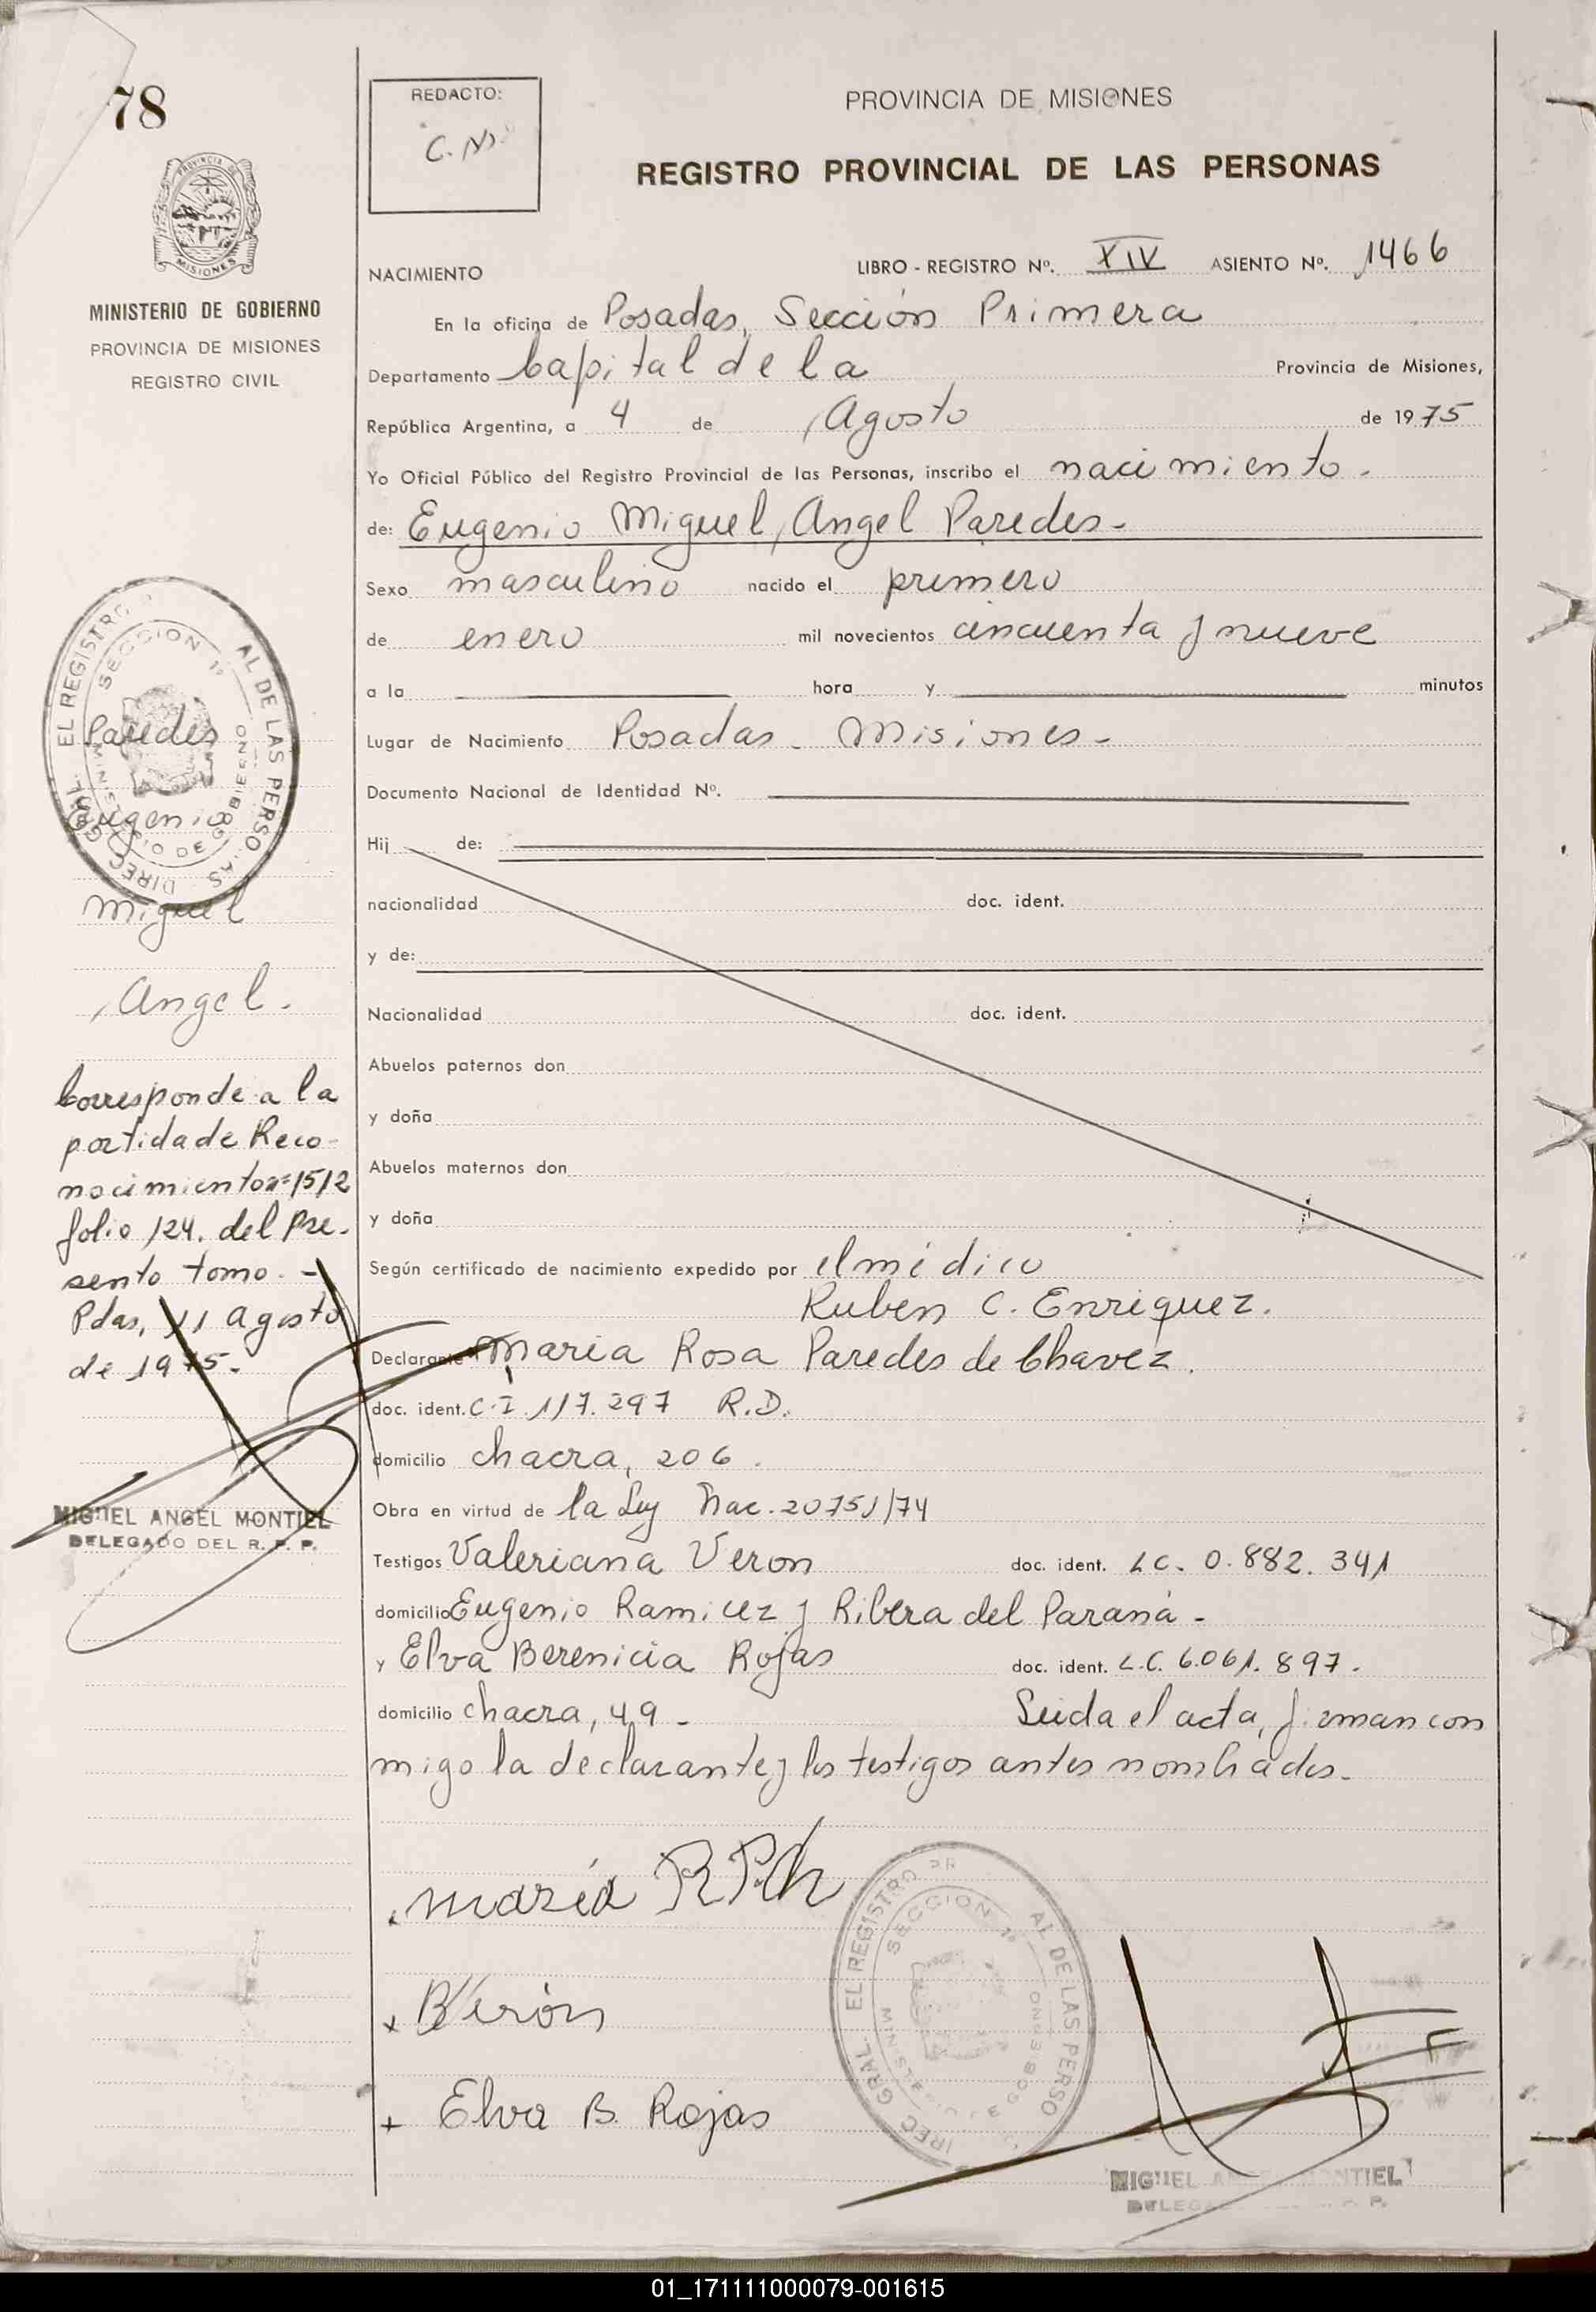 78
REDACTO:
C. M.
PROVINCIA DE MISIONES
REGISTRO PROVINCIAL DE LAS PERSONAS
PROVINCIA DE
MISIONES
MINISTERIO DE GOBIERNO
PROVINCIA DE MISIONES
REGISTRO CIVIL
NACIMIENTO
LIBRO - REGISTRO Nº. XIV ASIENTO Nº. 1466
En la oficina de Posadas, Sección Primera
Departamento Capital de la Provincia de Misiones,
República Argentina, a 4 de Agosto de 1975
Yo Oficial Público del Registro Provincial de las Personas, inscribo el nacimiento.
de: Eugenio Miguel Angel Paredes-
Sexo masculino nacido el primero
de enero mil novecientos cincuenta y nueve
a la hora y minutos
Lugar de Nacimiento Posadas - Misiones-
Documento Nacional de Identidad Nº.
Hij de:
nacionalidad doc. ident.
y de:
Nacionalidad doc. ident.
Abuelos paternos don
y doña
Abuelos maternos don
y doña
Según certificado de nacimiento expedido por el médico
Ruben C. Enriquez.
Declarante Maria Rosa Paredes de Chavez.
doc. ident. C.I. 117.297 R.D.
domicilio chacra, 206.
Obra en virtud de la Ley Nac. 20751/74
Testigos Valeriana Veron doc. ident. L.C. 0.882.341
domicilio Eugenio Ramirez y Ribera del Paraná-
y Elva Berenicia Rojas doc. ident. L.C. 6.061.897.
domicilio chacra, 49- Leida el acta, firman con
migo la declarante y los testigos antes nombrados-
Maria RPCh
BVerón
Elva B. Rojas
EL REGISTRO PR AL DE LAS PERSO
SECCION 1º
DIREC GRAL.
MIGUEL ANGEL MONTIEL
DELEGA R. P. P.
EL REGISTRO P AL DE LAS PERSO AS
SECCION 1º
MINISTERIO DE GOBIERNO
DIREC GRAL.
Paredes
Eugenio
Miguel
Angel.
Corresponde a la
partida de Reco-
nocimiento nº 1512
folio 124. del Pre-
sente tomo.-
Pdas, 11 agosto
de 1975-
MIGUEL ANGEL MONTIEL
DELEGADO DEL R. P. P.
01_171111000079-001615